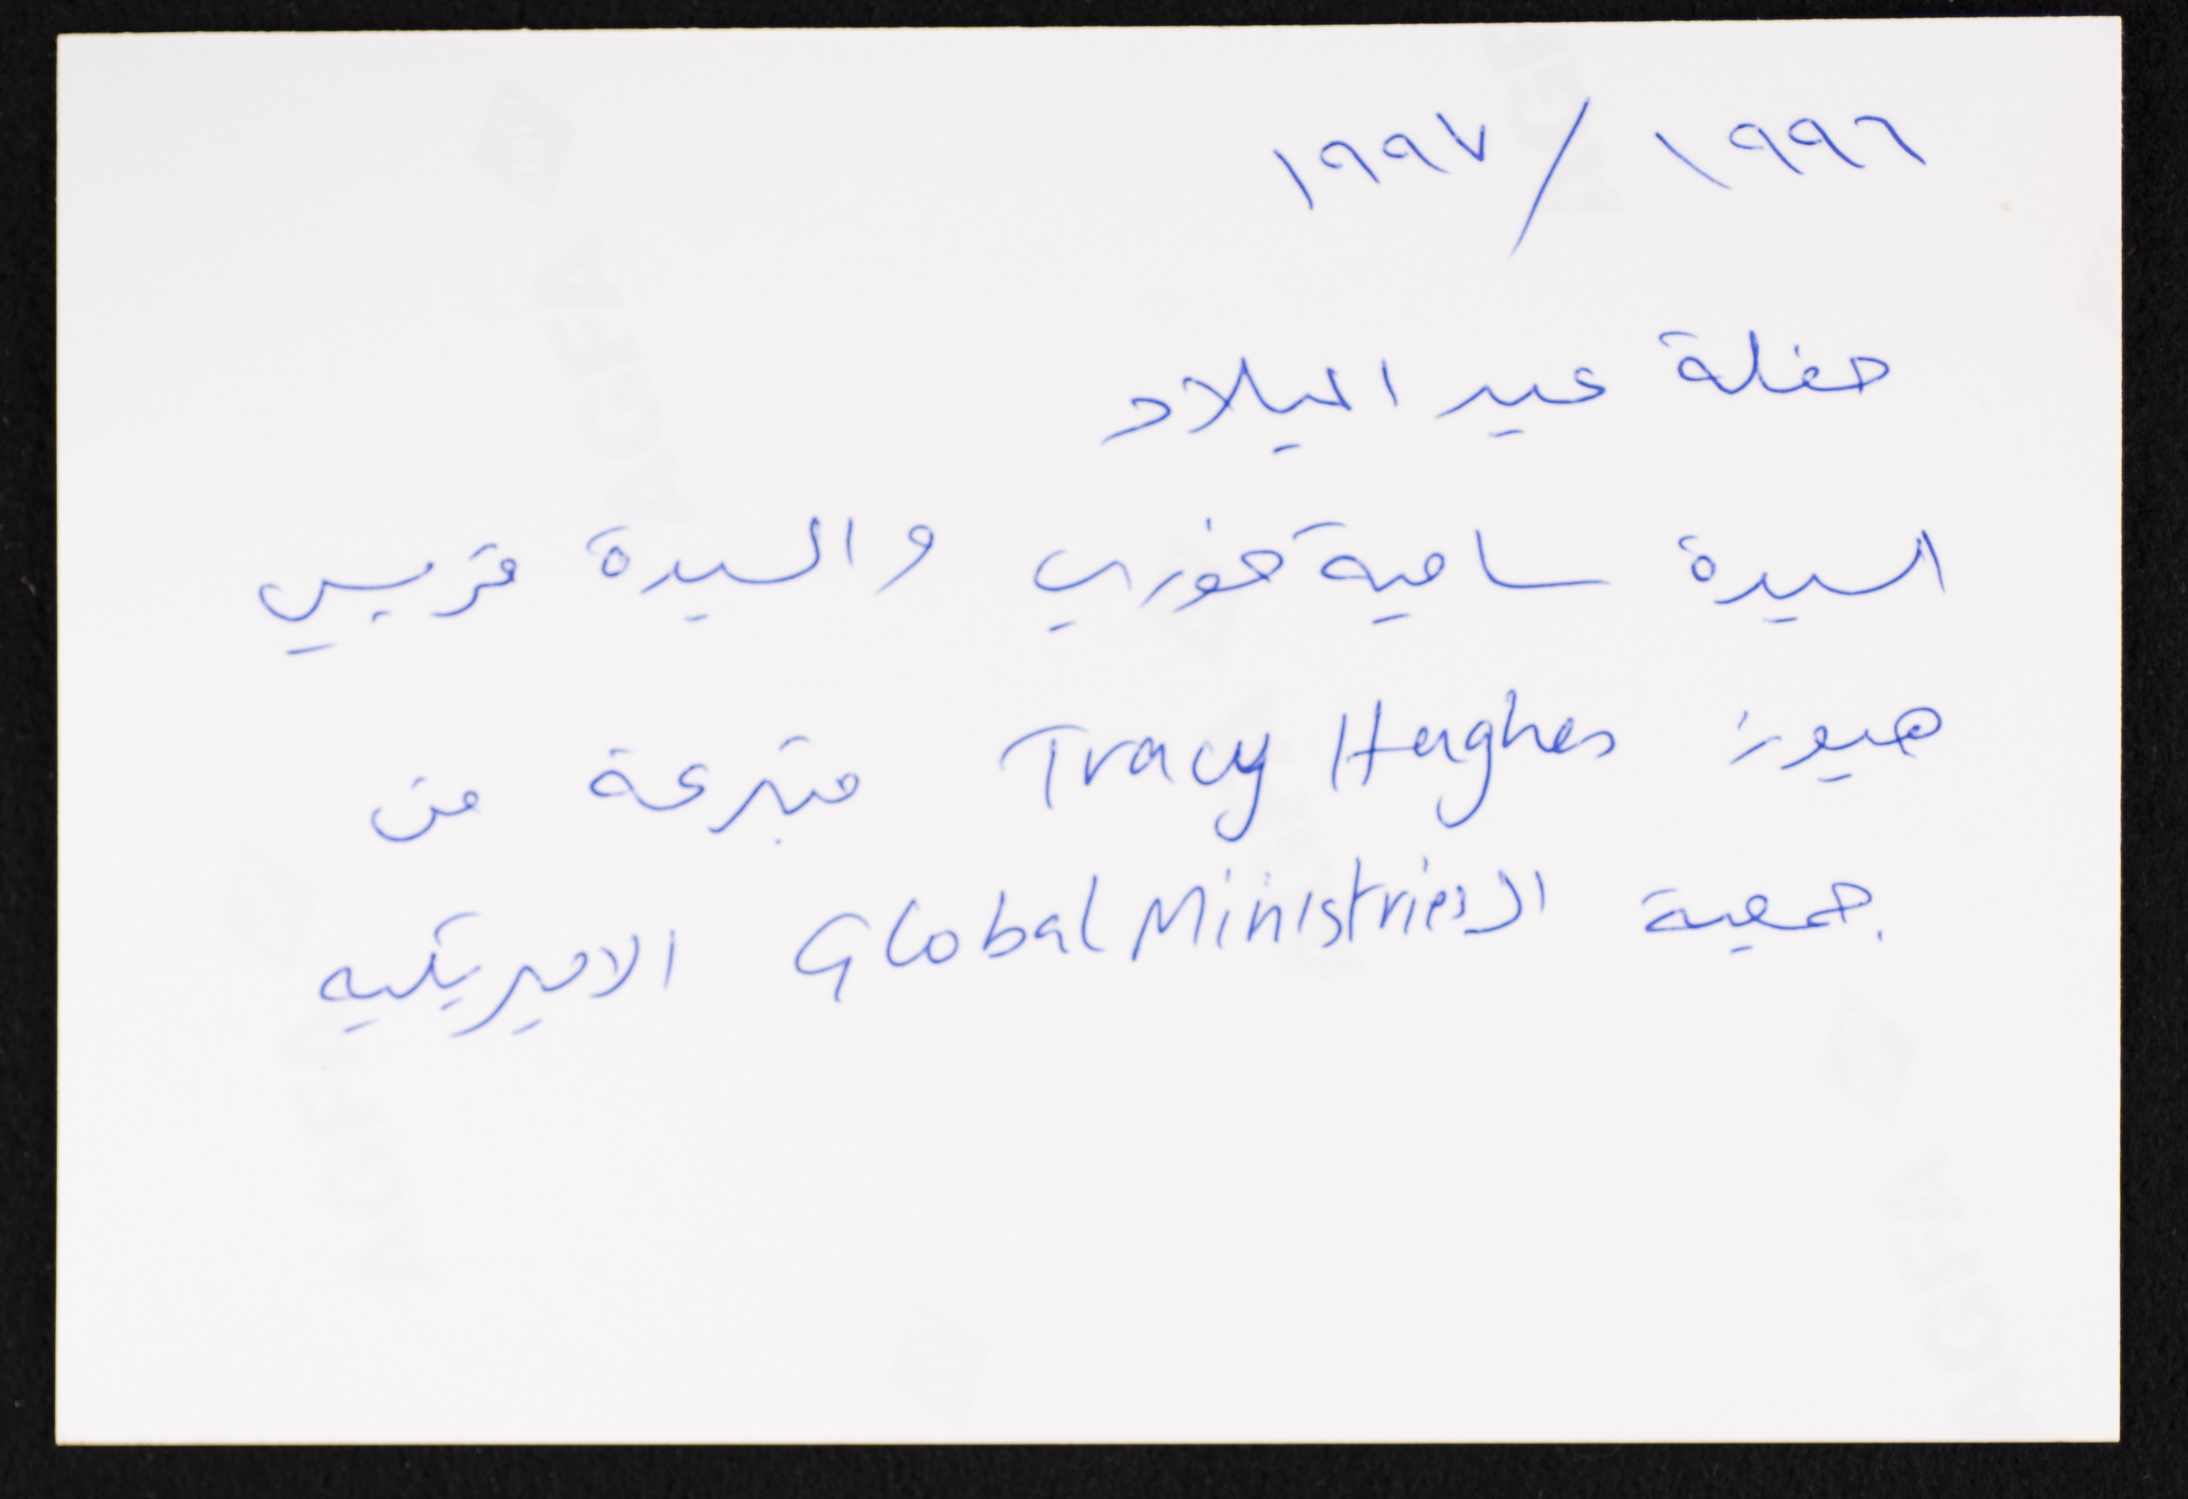 ١٩٩٦ / ١٩٩٧
حفلة عيد الميلاد
السيدة سامية خوري والسيدة تريسي
هيوز Tracy Hughes متبرعة من
جمعية الـ Global Ministries الاميريكيه
AGFA
AGFA
AGFA